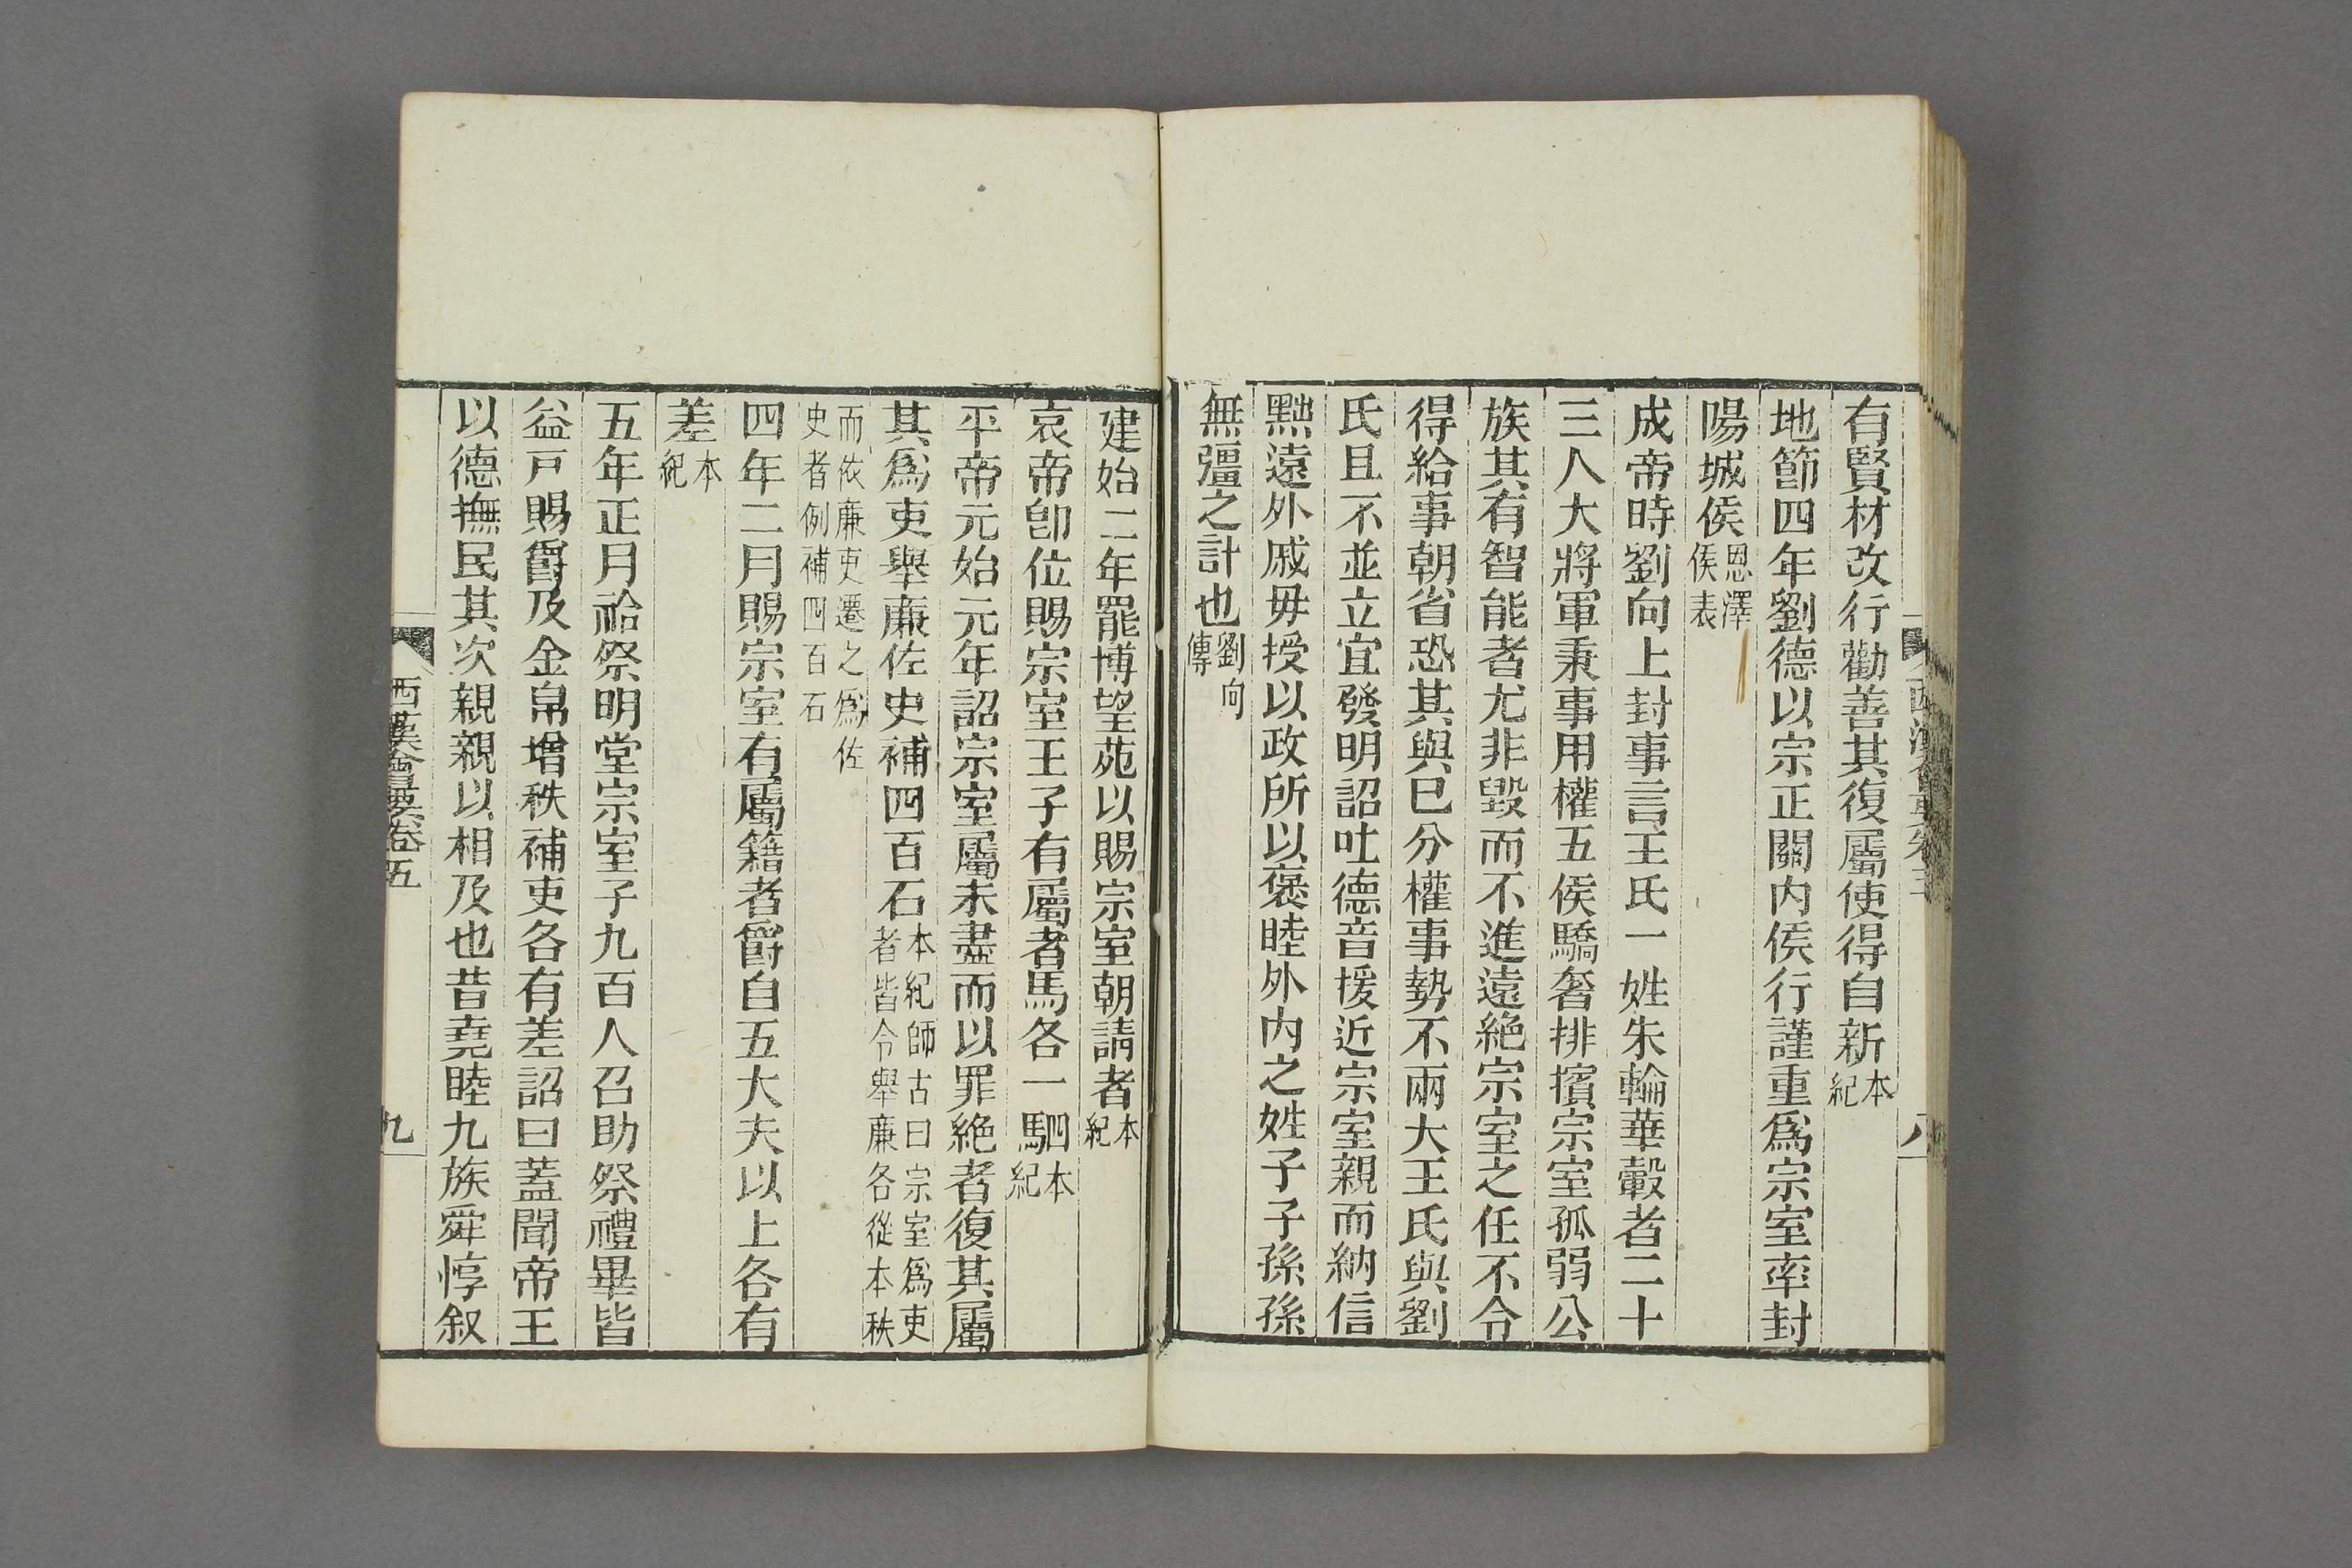 有賢材改行勸善其復屬使得自新本紀
地節四年劉德以宗正關内侯行謹重爲宗室率封
陽城侯恩澤侯表
成帝時劉向上封事言王氏一姓朱輪華轂者二十
三人大將軍秉事用權五侯驕奢排擯宗室孤弱公
族其有智能者尤非毀而不進遠絶宗室之任不令
得給事朝省恐其與已分權事勢不兩大王氏與劉
氏且不並立宜發明詔吐德音援近宗室親而納信
黜遠外戚毋授以政所以褒睦外内之姓子子孫孫
無彊之計也劉向傳
建始二年罷博望苑以賜宗室朝請者本紀
哀帝卽位賜宗室王子有屬者馬各一駟本紀
平帝元始元年詔宗室屬未盡而以罪絶者復其屬
其爲吏舉廉佐史補四百石本紀師古曰宗室爲吏者皆令舉廉各從本秩
而依廉吏遷之爲佐史者例補四百石
四年二月賜宗室有屬籍者爵自五大夫以上各有
差本紀
五年正月祫祭明堂宗室子九百人召助祭禮畢皆
益戸賜爵及金帛增秩補吏各有差詔曰蓋聞帝王
以德撫民其次親親以相及也昔堯睦九族舜惇叙
西漢會要卷五
九